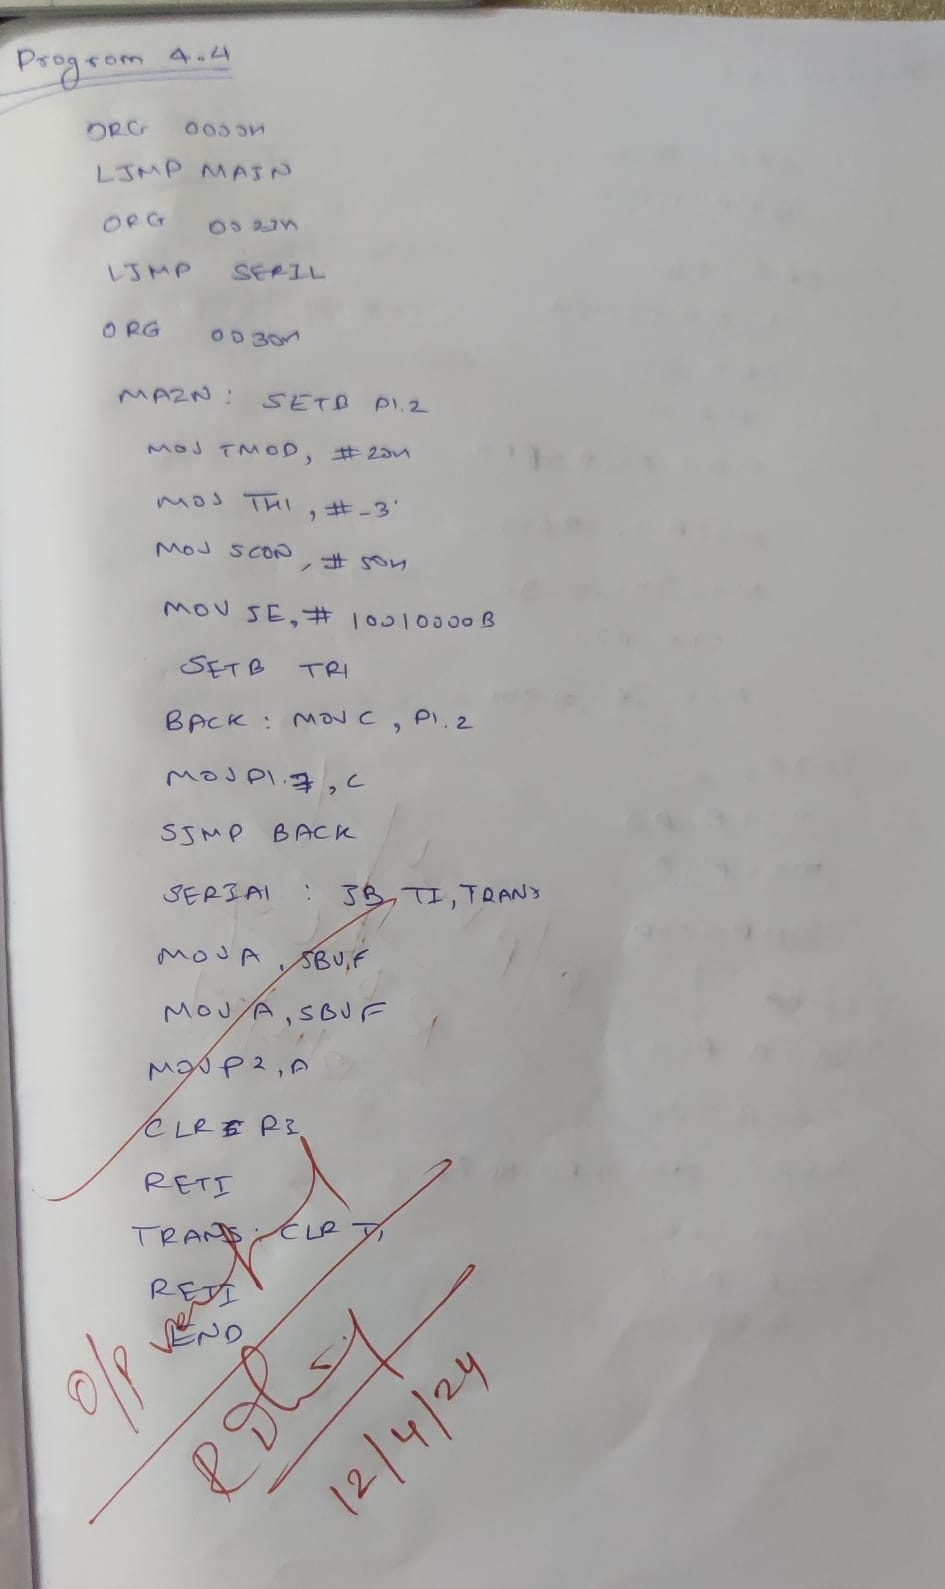 Program 4.4
ORG 0000H
LJMP MAIN
ORG 0023H
LJMP SERIL
ORG 0030H
MAIN: SETB P1.2
MOV TMOD, #20H
MOV TH1, #-3
MOV SCON, #50H
MOV IE, #10010000B
SETB TR1
BACK: MOV C, P1.2
MOV P1.7, C
SJMP BACK
SERIAl : JB TI, TRANS
MOV A, SBUF
MOV A, SBUF
MOV P2, A
CLR RI
RETI
TRANS: CLR TI
RETI
END
O/P
12/4/24